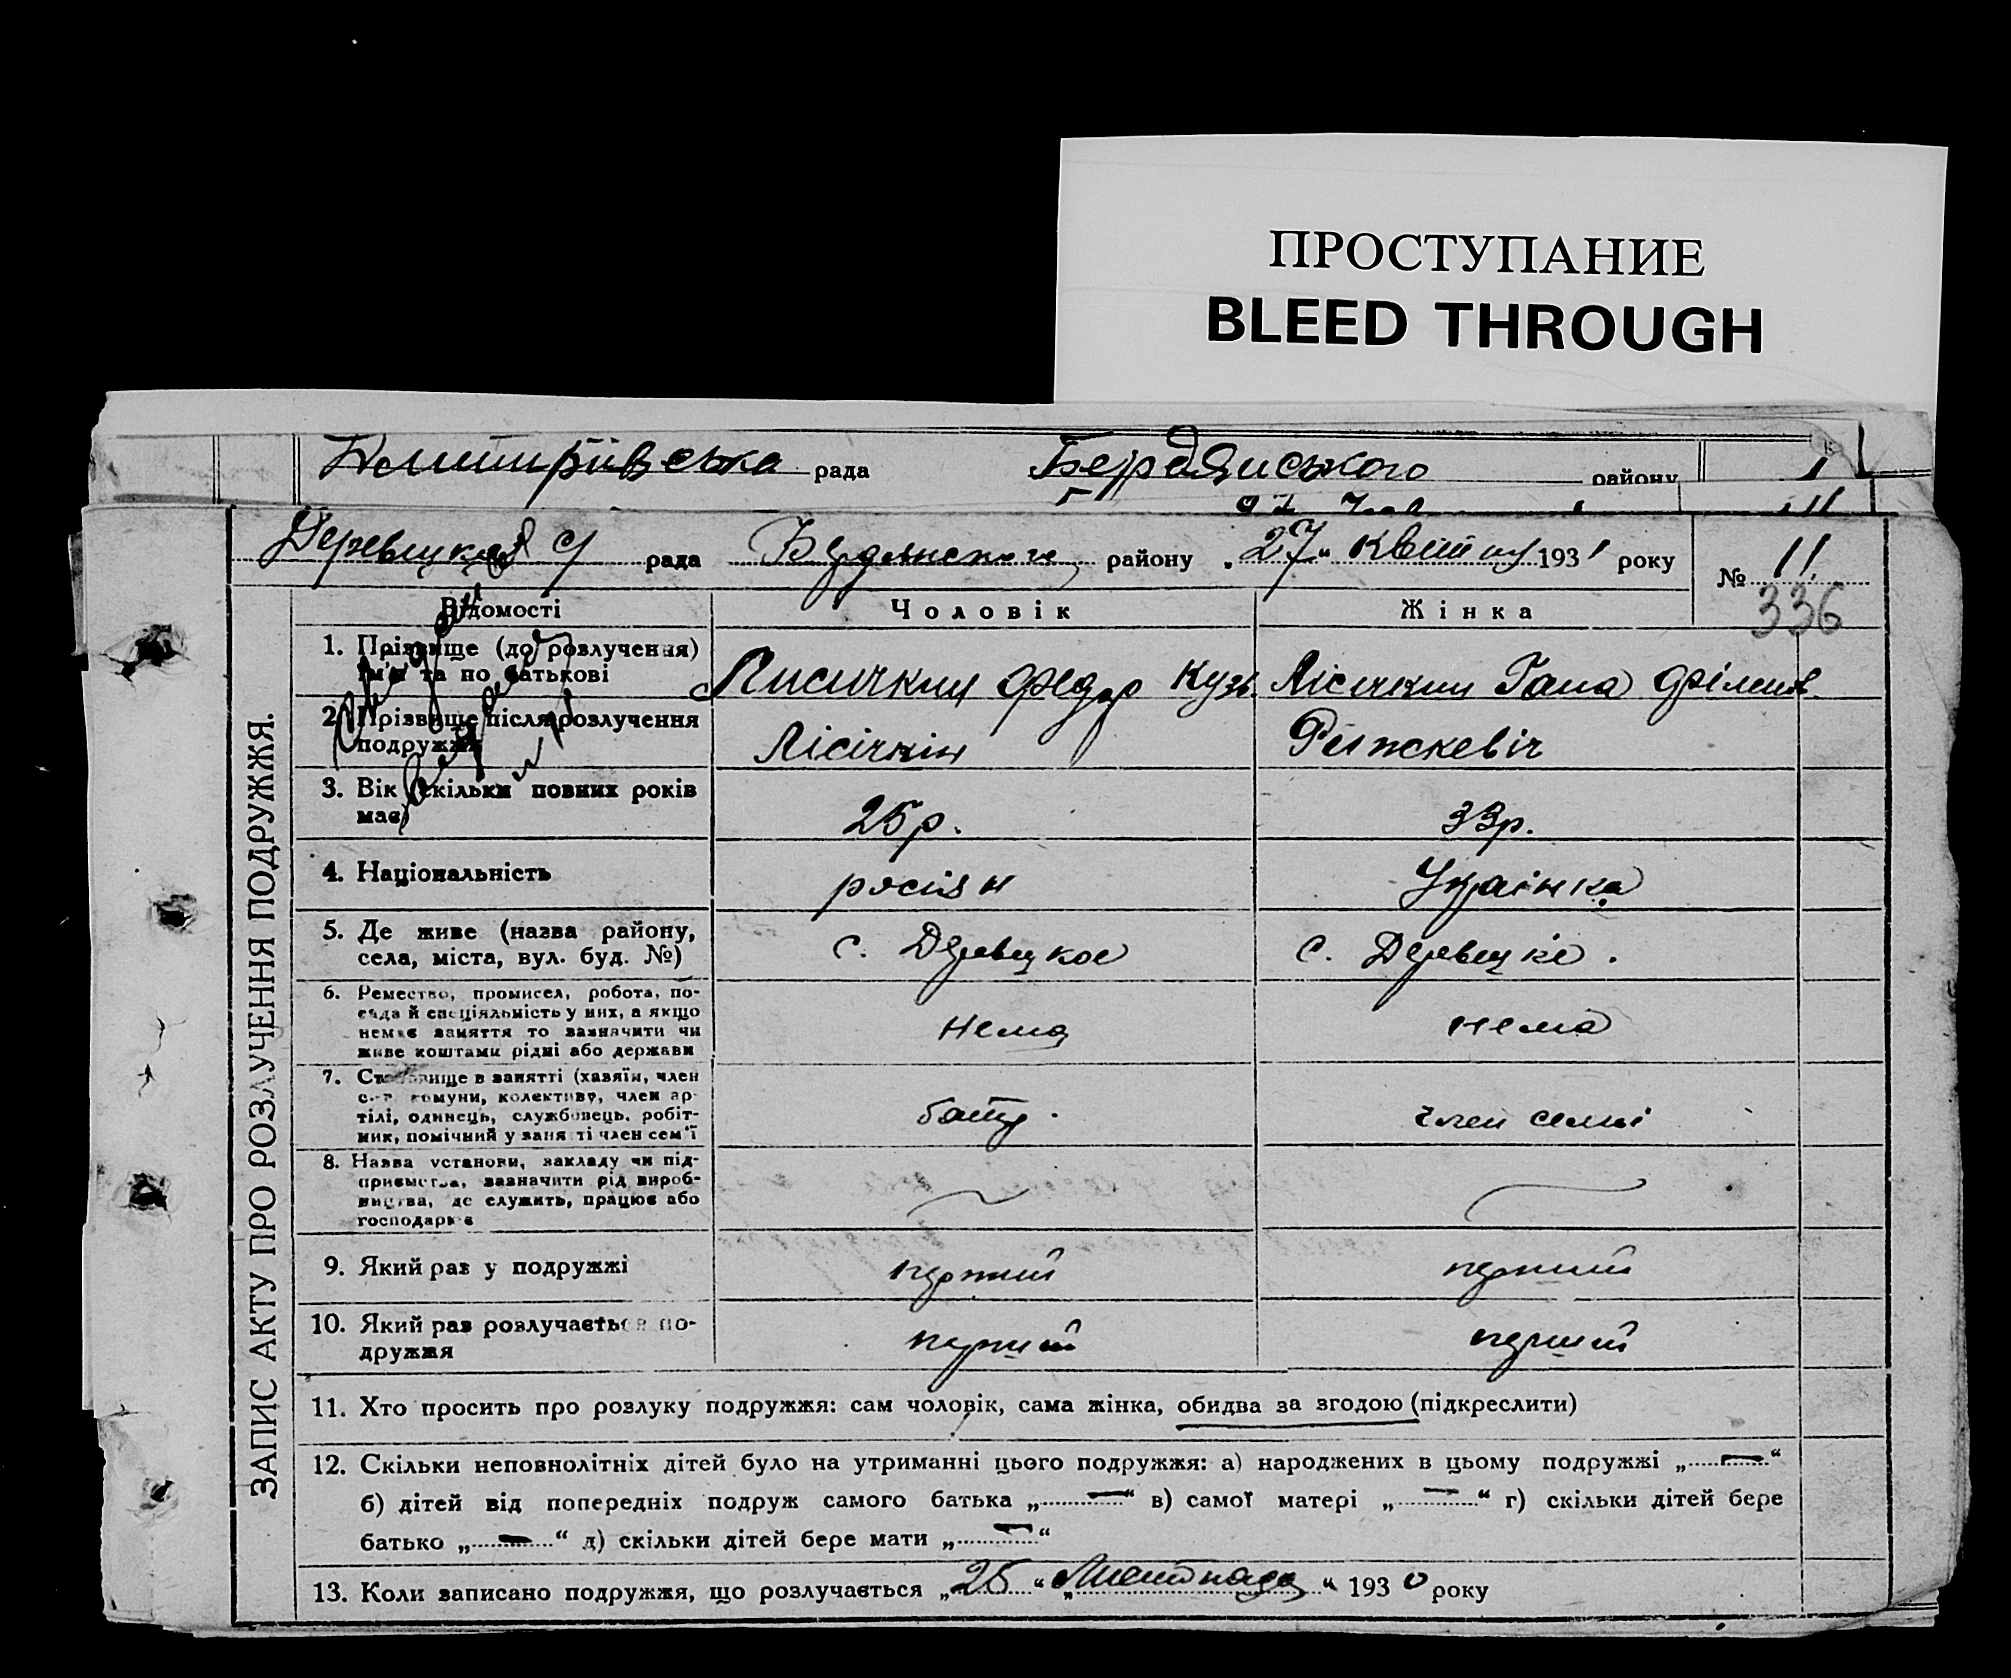 ПРОСТУПАНИЕ
BLEED THROUGH
Дмитрівська рада Бердянського району
рада району „27“ квітня 1931 року № 11
336
ЗАПИС АКТУ ПРО РОЗЛУЧЕННЯ ПОДРУЖЖЯ.
Відомості Чоловік Жінка
1. Прізвище (до розлучення) імʼя та по батькові Лисичкин Федор Кузь. Лісічкин Гана Філимов.
2. Прізвище після розлучення подружжя Лісічкін
3. Вік (скільки повних років має) 25 р. 33 р.
4. Національність росіян Українка
5. Де живе (назва району, села, міста, вул. буд. №) с. Деревецкое с. Деревецке.
6. Ремество, промисел, робота, посада й спеціяльність у них, а якщо немає заняття то зазначити чи живе коштами рідні або держави Нема нема
7. Становище в занятті (хазяїн, член с.-г. комуни, колективу, член артілі, одинець, службовець, робітник, помічний у занятті член семʼї член семьї
8. Назва установи, закладу чи підприємства, зазначити рід виробництва, де служить, працює або господарює
9. Який раз у подружжі перший перший
10. Який раз розлучається подружжя перший перший
11. Хто просить про розлуку подружжя: сам чоловік, сама жінка, обидва за згодою (підкреслити)
12. Скільки неповнолітніх дітей було на утриманні цього подружжя: а) народжених в цьому подружжі „—“
б) дітей від попередніх подруж самого батька „—“ в) самої матері „—“ г) скільки дітей бере
батько „—“ д) скільки дітей бере мати „—“
13. Коли записано подружжя, що розлучається „25“ „Листопада“ 1930 року